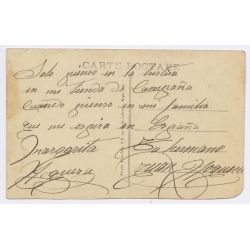 CARTE POSTALE
Solo pienso en la tristeza
en mi tienda de Campaña
Cuando pienso en mi familia
que me espera en España
Margarita Tu hermano
Noguera Juan Noguera